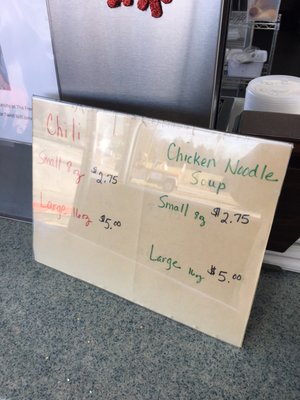 Chili
Small 8oz $2.75
Large 16oz $5.00
Chicken Noodle
Soup
Small 8oz $2.75
Large 16oz $5.00